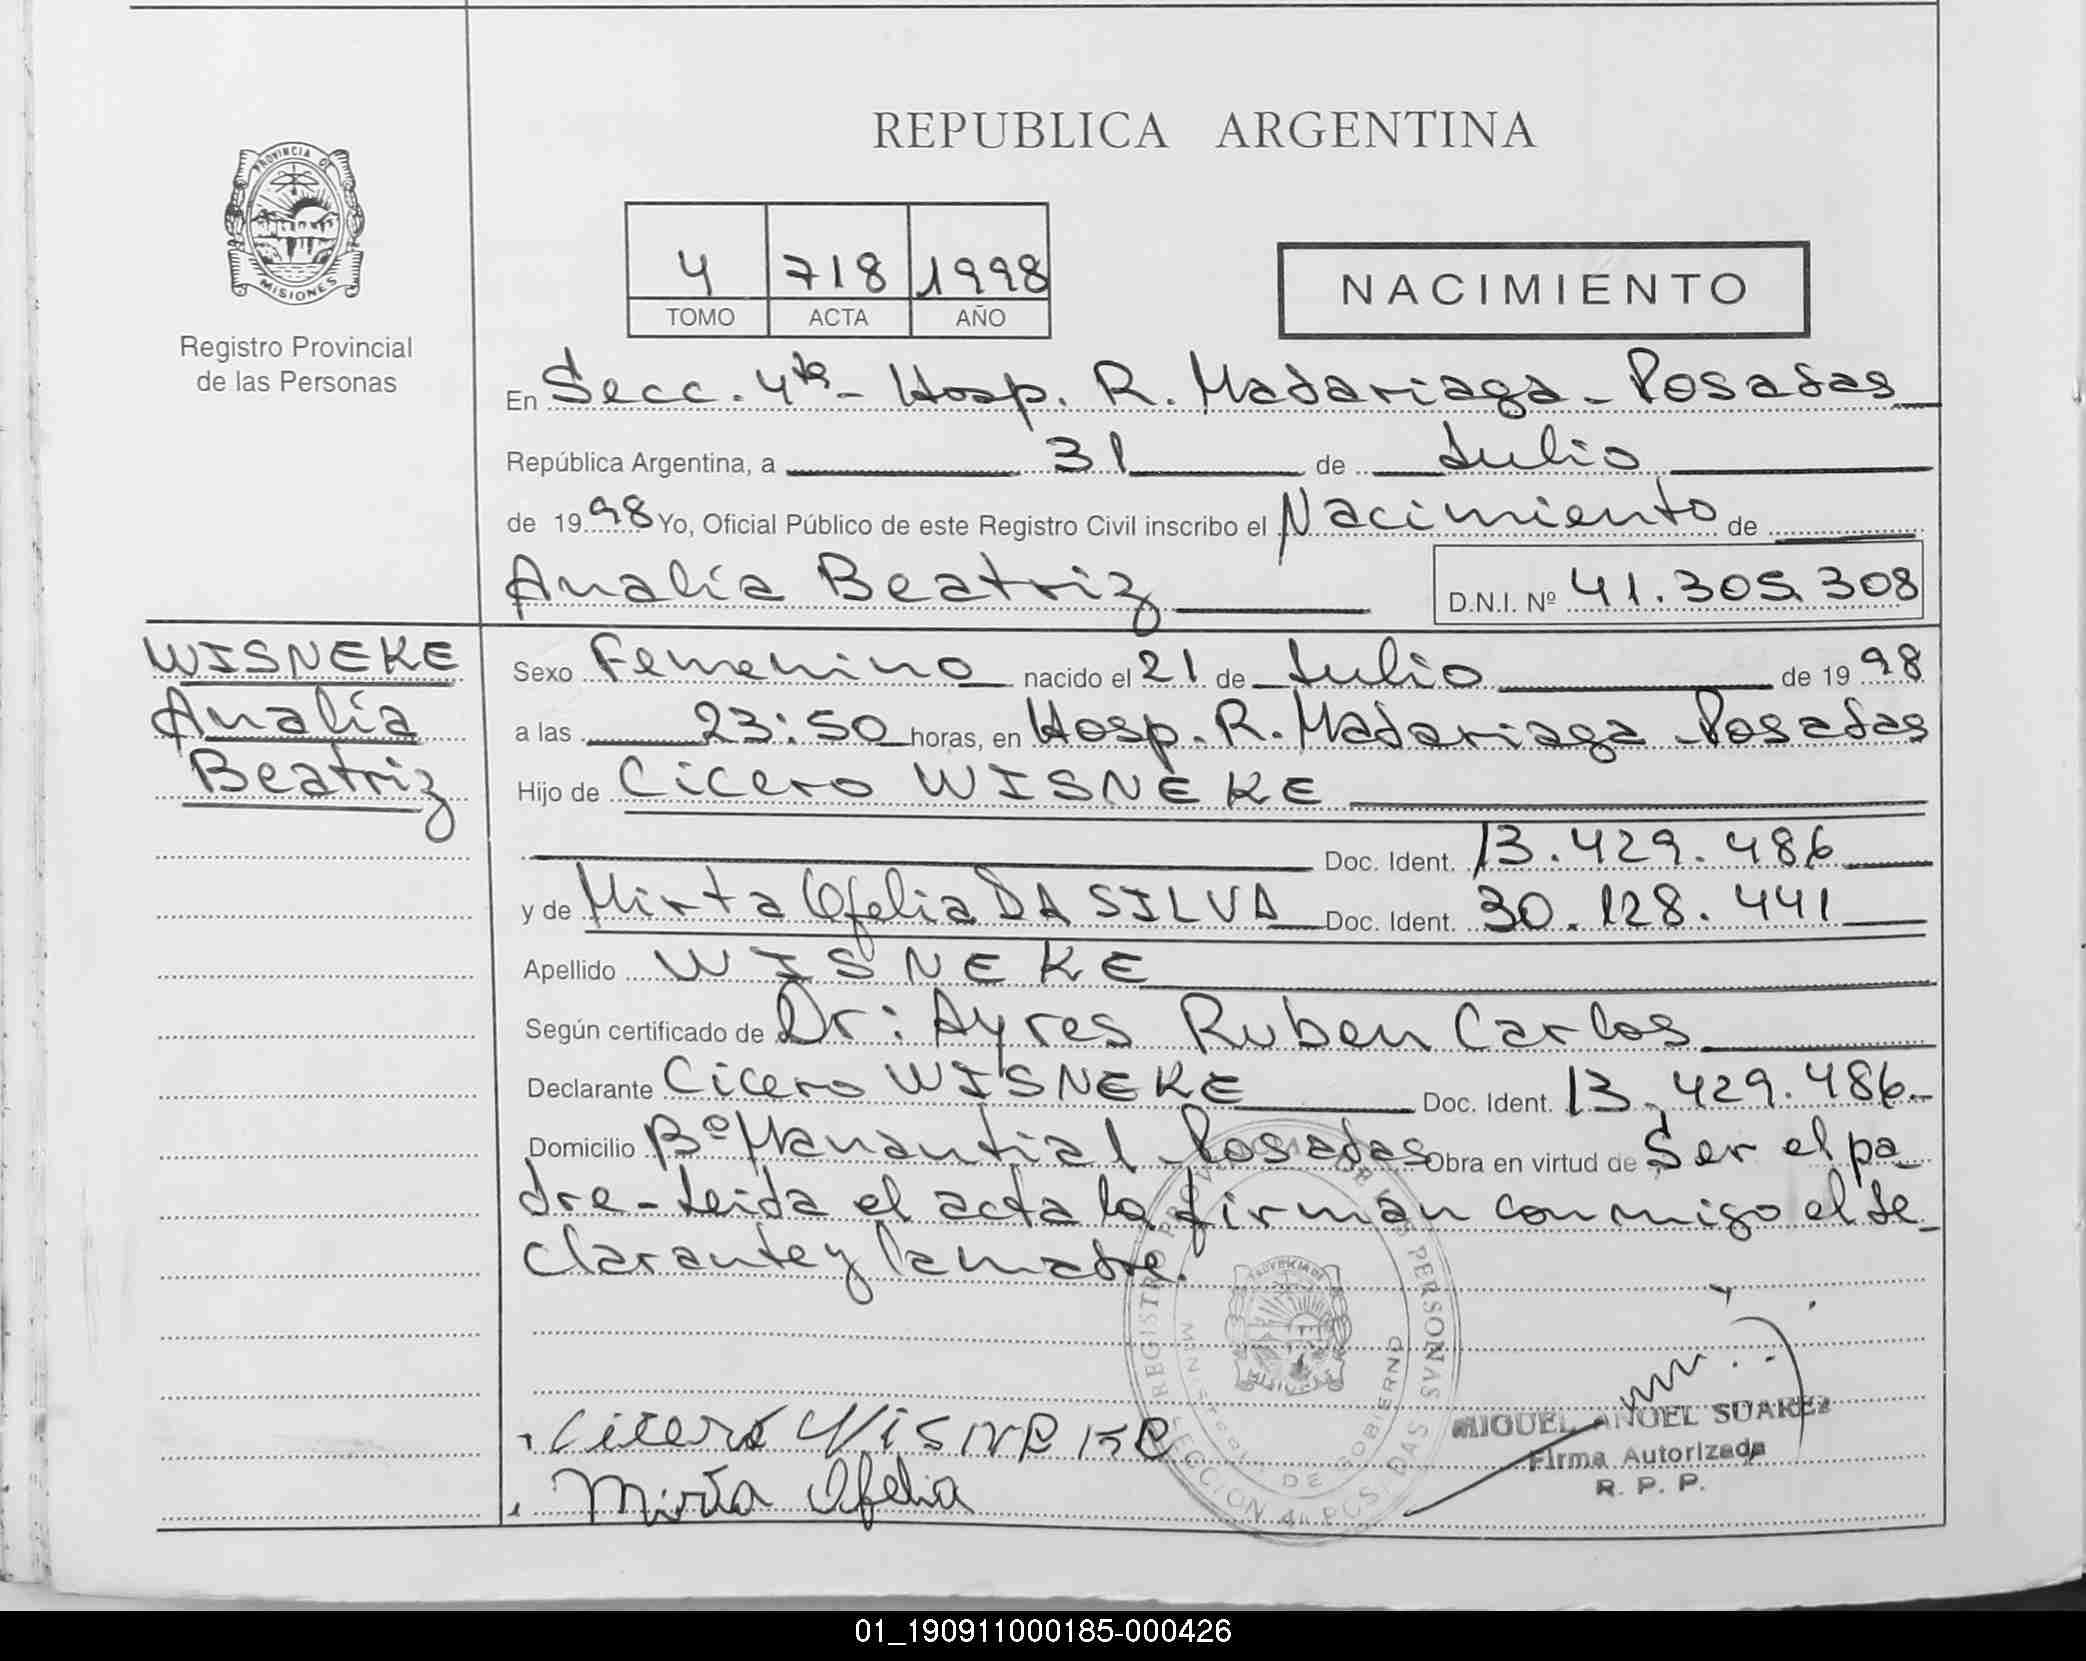 REPUBLICA ARGENTINA
PROVINCIA DE
MISIONES
Registro Provincial
de las Personas
4 718 1998
TOMO ACTA AÑO
NACIMIENTO
En Secc. 4ta - Hosp. R. Madariaga - Posadas
República Argentina, a 31 de Julio
de 1998 Yo, Oficial Público de este Registro Civil inscribo el Nacimiento de
Analía Beatriz D.N.I. Nº 41.305.308
WISNEKE
Analía
Beatriz
Sexo Femenino nacido el 21 de Julio de 1998
a las 23:50 horas, en Hosp. R. Madariaga - Posadas
Hijo de Cicero WISNEKE
Doc. Ident. 13.429.486
y de Mirta Ofelia DA SILVA Doc. Ident. 30.128.441
Apellido WISNEKE
Según certificado de Dr: Ayres Ruben Carlos
Declarante Cicero WISNEKE Doc. Ident. 13.429.486-
Domicilio Bº Manantial - Posadas Obra en virtud de Ser el pa-
dre - Leida el acta la firman conmigo el de-
clarante y la madre.
REGISTRO PROVINCIAL DE LAS PERSONAS
MINISTERIO DE GOBIERNO
SECCION 4ta POSADAS
PROVINCIA DE
MISIONES
Cicero WiSNeKe
Mirta Ofelia
MIGUEL ANGEL SUAREZ
Firma Autorizada
R. P. P.
01_190911000185-000426